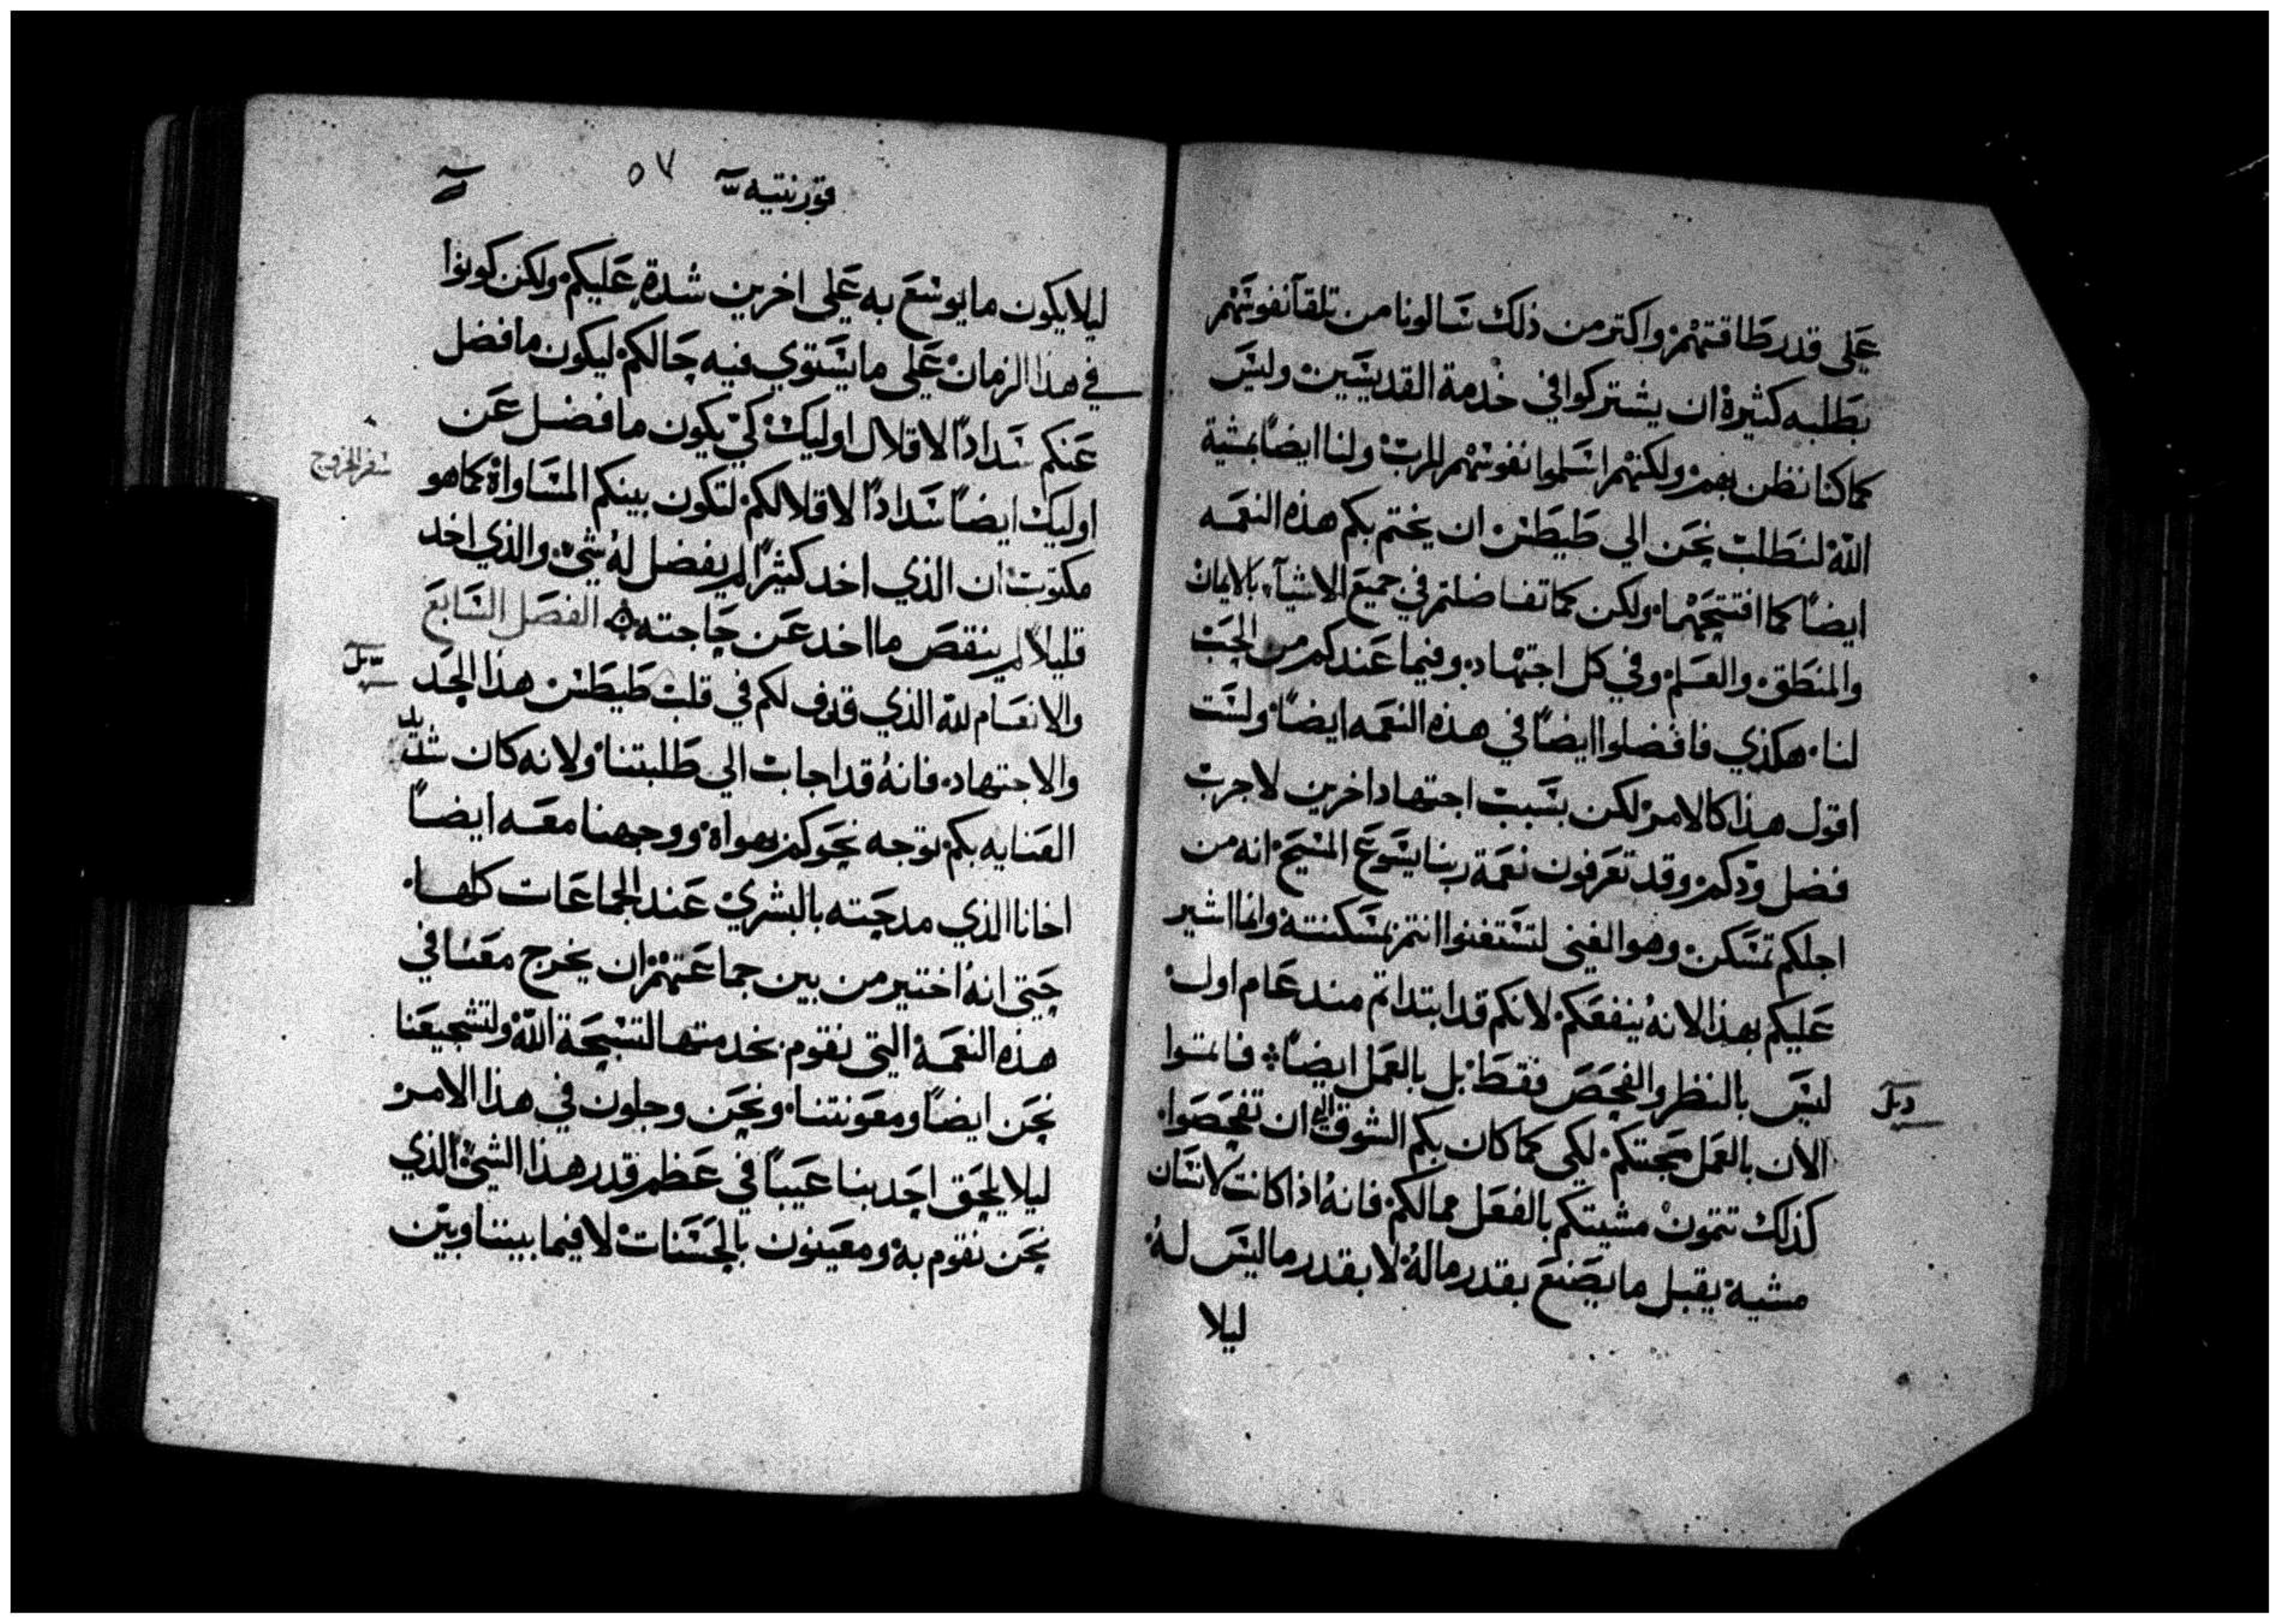 علي قدر طاقتهم واكتر من ذلك سالونا من تلقآ نفوسهم
بطلبه كثيرة ان يشتركوا في خدمة القديسين وليس
كما كنا نظن بهم ولكنهم اسلموا نفوسهم للرب ولنا ايضًا بمشية
الله لنطلب نحن الي طيطس ان يختم بكم هذه النعمه
ايضًا كما افتتحها ولكن كما تفاضلتم في جميع الاشيآء بالايمان
والمنطق والعلم وفي كل اجتهاد وفيما عندكم من الحب
لنا هكذي فافضلوا ايضًا في هذه النعمه ايضًا ولست
اقول هذا كالامر لكن بسبب اجتهاد اخرين لاجرب
فضل ودكم وقد تعرفون نعمة ربنا يسوع المسيح انه من
اجلكم تمسكن وهو الغني لتستغنوا انتم بمسكنته وانما اشير
عليكم بهذا لانهُ ينفعكم لانكم قد ابتداتم مند عام اول
ليس بالنظر والفحص فقط بل بالعمل ايضًا فاتموا
الان بالعمل محبتكم لكي كما كان بكم الشوق الي ان تفحصوا
كذلك تتمون مشيتكم بالفعل مما لكم فانهُ اذا كانت لانسان
مشية يقبل ما يصنع بقدر ما لهُ لا بقدر ما ليس لهُ
ليلا
قورنتيه
٥٧
ليلا يكون ما يوسع به علي اخرين شدة عليكم ولكن كونوا
في هذا الزمان علي ما يستوي فيه حالكم ليكون ما فضل
عنكم سدادًا لاقلال اوليك كي يكون ما فضل عن
اوليك ايضًا سدادًا لاقلالكم لتكون بينكم المساواة كما هو
سفر الخروج
مكتوب ان الذي اخد كثيرًا لم يفضل لهُ شي والذي اخد
قليلاً لم ينقص ما اخد عن حاجته الفصل السابع
والانعام لله الذي قدف لكم في قلب طيطس هذا الجد
والاجتهاد فانهُ قد اجاب الي طلبتنا ولانه كان شديد
العنايه بكم توجه نحوكم بهواه ووجهنا معه ايضًا
اخانا الذي مدحته بالبشري عند الجماعات كلها
حتي انهُ اختير من بين جماعتهم ان يخرج معنا في
هذه النعمة التي نقوم بخدمتها لتسبحة الله ولتشجيعنا
نحن ايضًا ومعونتنا ونحن وجلون في هذا الامر
ليلا يلحق احد بنا عيبًا في عظم قدر هذا الشي الذي
نحن نقوم به ومعينون بالحسنات لا فيما بيننا وبين